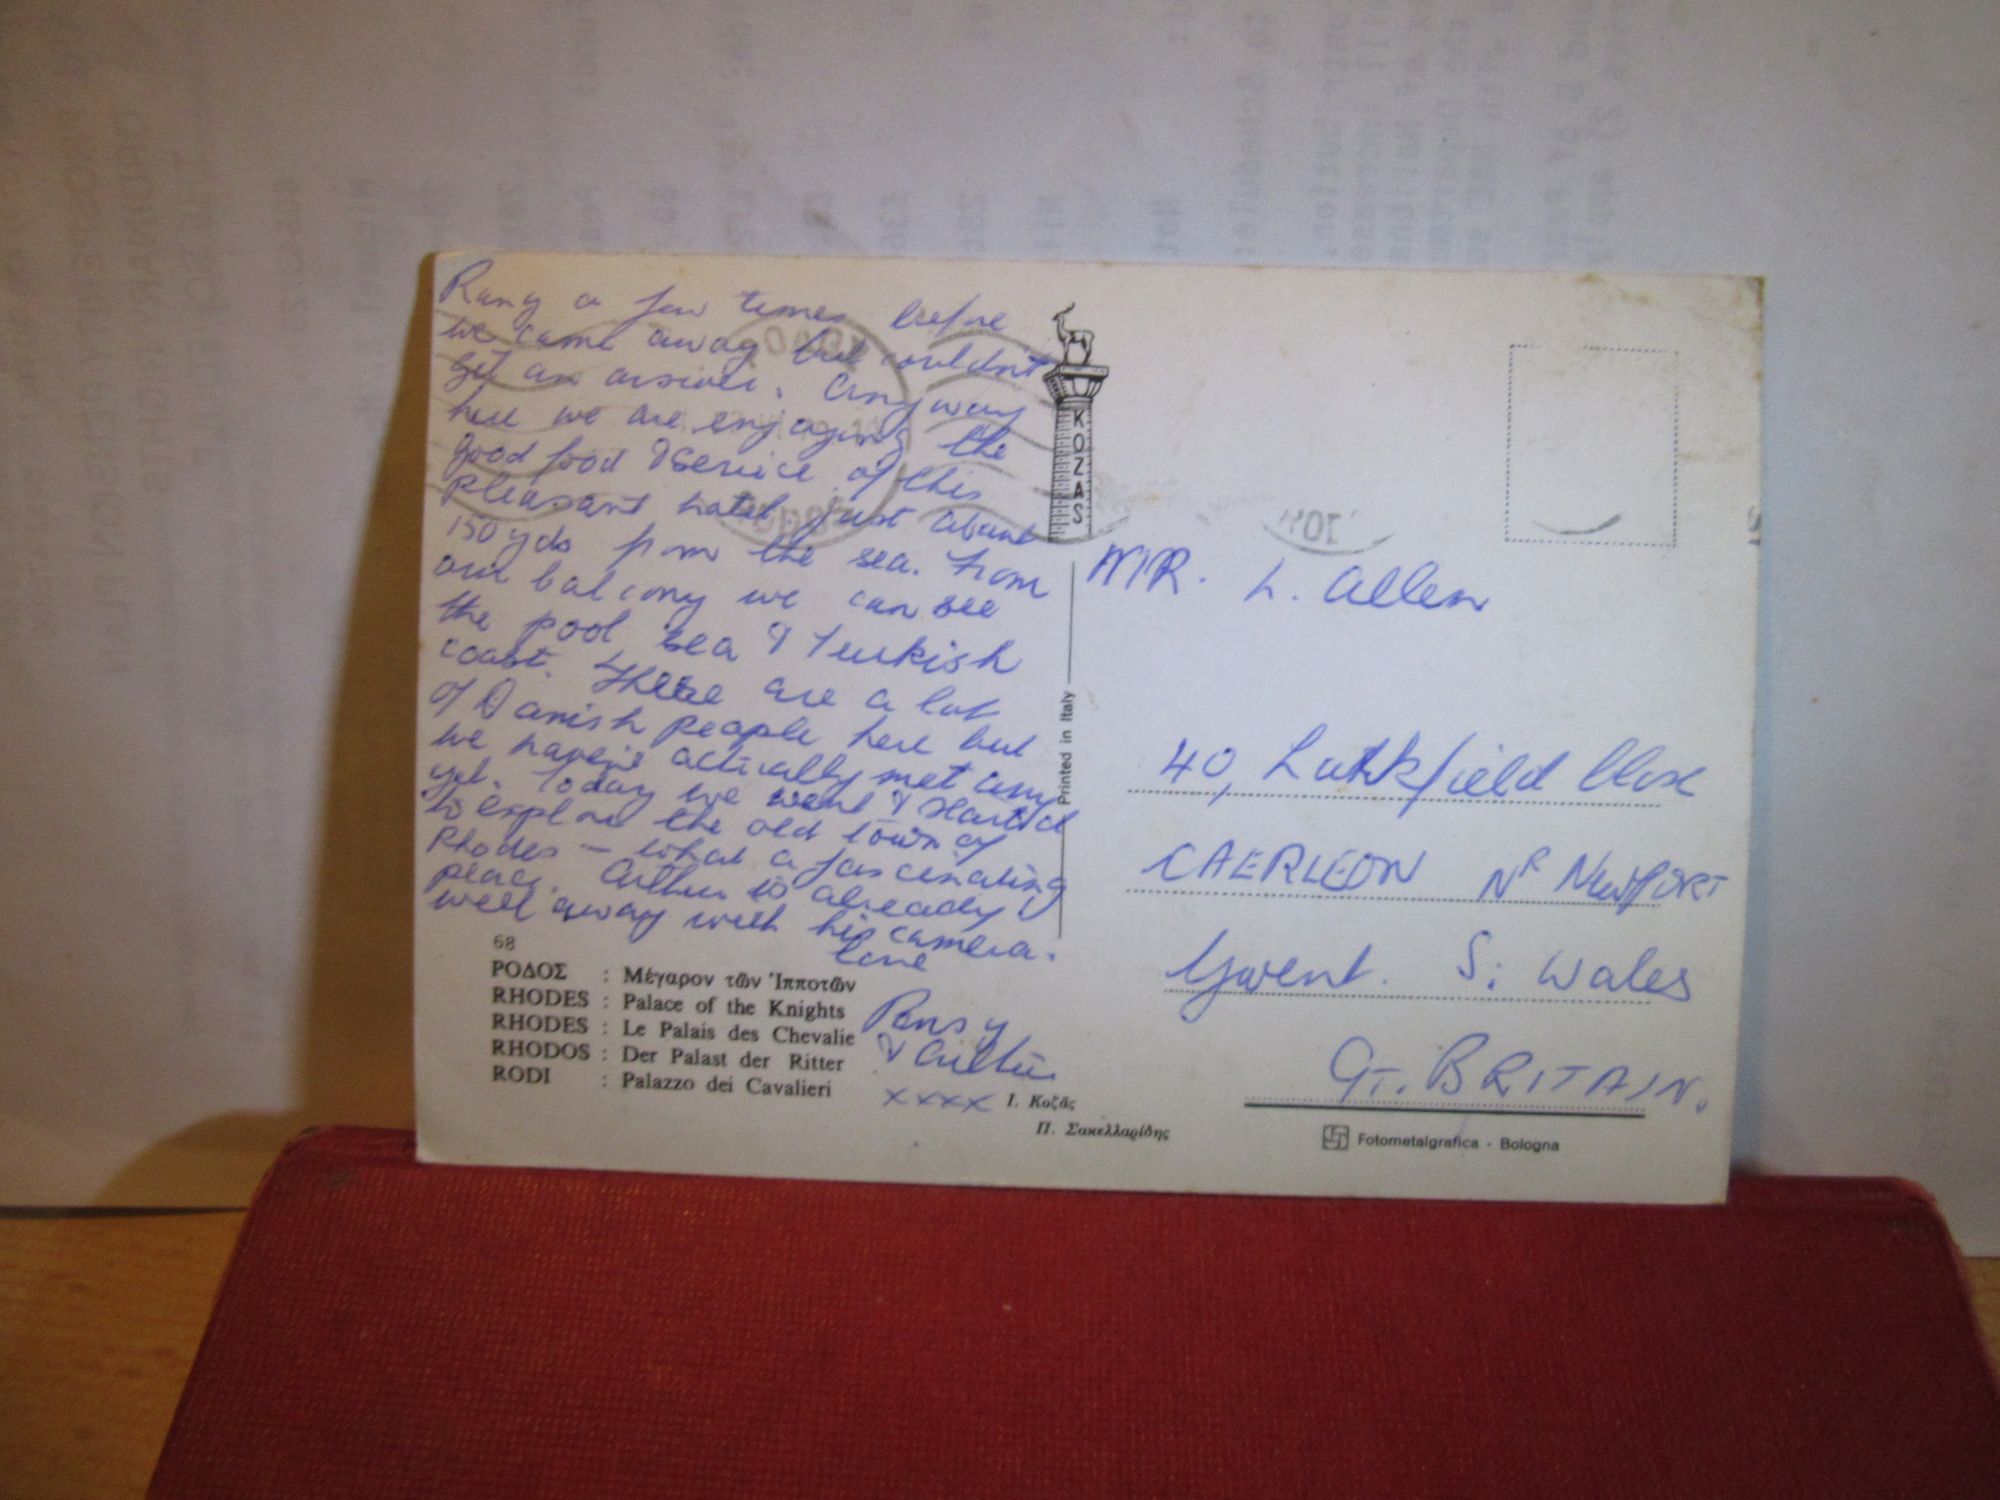 Rang a few times before
we came away but couldn't
get an answer. Anyway
here we are enjoying the
good food & service of this
pleasant hotel just about
150 yds from the sea. From
our balcony we can see
the pool sea & Turkish
coast. There are a lot
of Danish people here but
we haven't actually met any
yet. Today we went & started
to explore the old town of
Rhodes – what a fascinating
place. Arthur is already
well away with his camera.
love
Pansy
& Arthur
xxxx
68
ΡΟΔΟΣ : Μέγαρον τῶν Ἱπποτῶν
RHODES : Palace of the Knights
RHODES : Le Palais des Chevalie
RHODOS : Der Palast der Ritter
RODI : Palazzo dei Cavalieri
Ι. Κοζᾶς
Π. Σακελλαρίδης
KOZAS
Printed in Italy
MR. L. Allen
40, Close
CAERLEON NR NEWPORT
Gwent. S. Wales
GT. BRITAIN.
Fotometalgrafica - Bologna